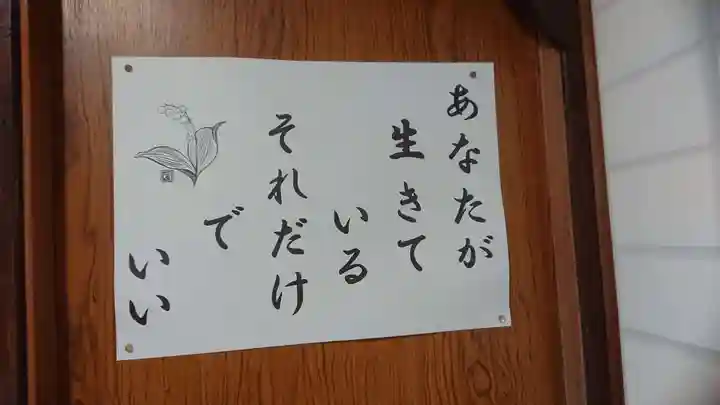 あなたが
生きて
いる
それだけ
で
いい